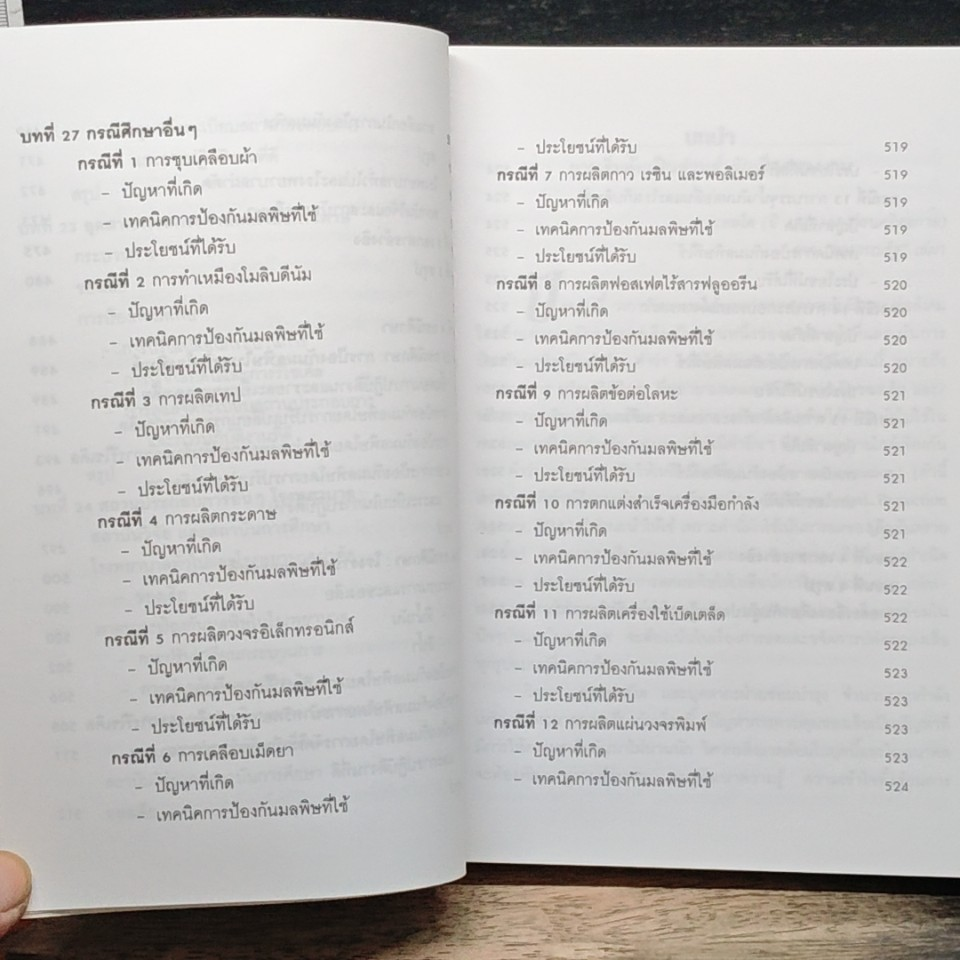 บทที่ 27 กรณีศึกษาอื่นๆ
กรณีที่ 1 การชุบเคลือบผ้า
– ปัญหาที่เกิด
– เทคนิคการป้องกันมลพิษที่ใช้
– ประโยชน์ที่ได้รับ
กรณีที่ 2 การทำเหมืองโมลิบดีนัม
– ปัญหาที่เกิด
– เทคนิคการป้องกันมลพิษที่ใช้
– ประโยชน์ที่ได้รับ
กรณีที่ 3 การผลิตเทป
– ปัญหาที่เกิด
– เทคนิคการป้องกันมลพิษที่ใช้
– ประโยชน์ที่ได้รับ
กรณีที่ 4 การผลิตกระดาษ
– ปัญหาที่เกิด
– เทคนิคการป้องกันมลพิษที่ใช้
– ประโยชน์ที่ได้รับ
กรณีที่ 5 การผลิตวงจรอิเล็กทรอนิกส์
– ปัญหาที่เกิด
– เทคนิคการป้องกันมลพิษที่ใช้
– ประโยชน์ที่ได้รับ
กรณีที่ 6 การเคลือบเม็ดยา
– ปัญหาที่เกิด
– เทคนิคการป้องกันมลพิษที่ใช้
– ประโยชน์ที่ได้รับ 519
กรณีที่ 7 การผลิตกาว เรซิน และพอลิเมอร์ 519
– ปัญหาที่เกิด 519
– เทคนิคการป้องกันมลพิษที่ใช้ 519
– ประโยชน์ที่ได้รับ 519
กรณีที่ 8 การผลิตฟอสเฟตไร้สารฟลูออรีน 520
– ปัญหาที่เกิด 520
– เทคนิคการป้องกันมลพิษที่ใช้ 520
– ประโยชน์ที่ได้รับ 520
กรณีที่ 9 การผลิตข้อต่อโลหะ 521
– ปัญหาที่เกิด 521
– เทคนิคการป้องกันมลพิษที่ใช้ 521
– ประโยชน์ที่ได้รับ 521
กรณีที่ 10 การตกแต่งสำเร็จเครื่องมือกำลัง 521
– ปัญหาที่เกิด 521
– เทคนิคการป้องกันมลพิษที่ใช้ 522
– ประโยชน์ที่ได้รับ 522
กรณีที่ 11 การผลิตเครื่องใช้เบ็ดเตล็ด 522
– ปัญหาที่เกิด 522
– เทคนิคการป้องกันมลพิษที่ใช้ 523
– ประโยชน์ที่ได้รับ 523
กรณีที่ 12 การผลิตแผ่นวงจรพิมพ์ 523
– ปัญหาที่เกิด 523
– เทคนิคการป้องกันมลพิษที่ใช้ 524